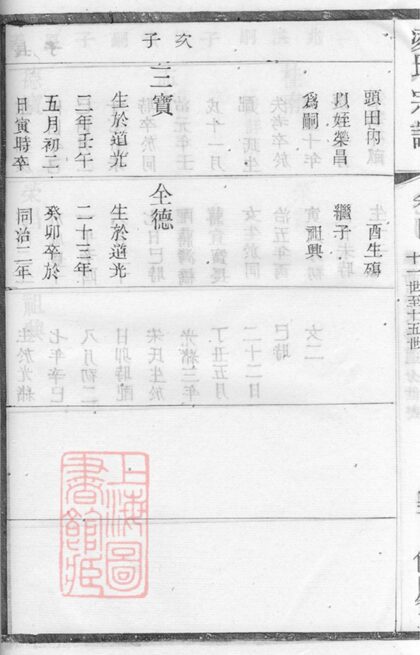 氏宗譜
十一世至十五世
次子
頭田內
以姪榮昌
爲嗣
三寶
生於道光
二年壬午
五月初二
日寅時卒
酉生殤
繼子
嗣興
全德
生於道光
二十三年
癸卯卒於
同治二年
上海圖
書館藏